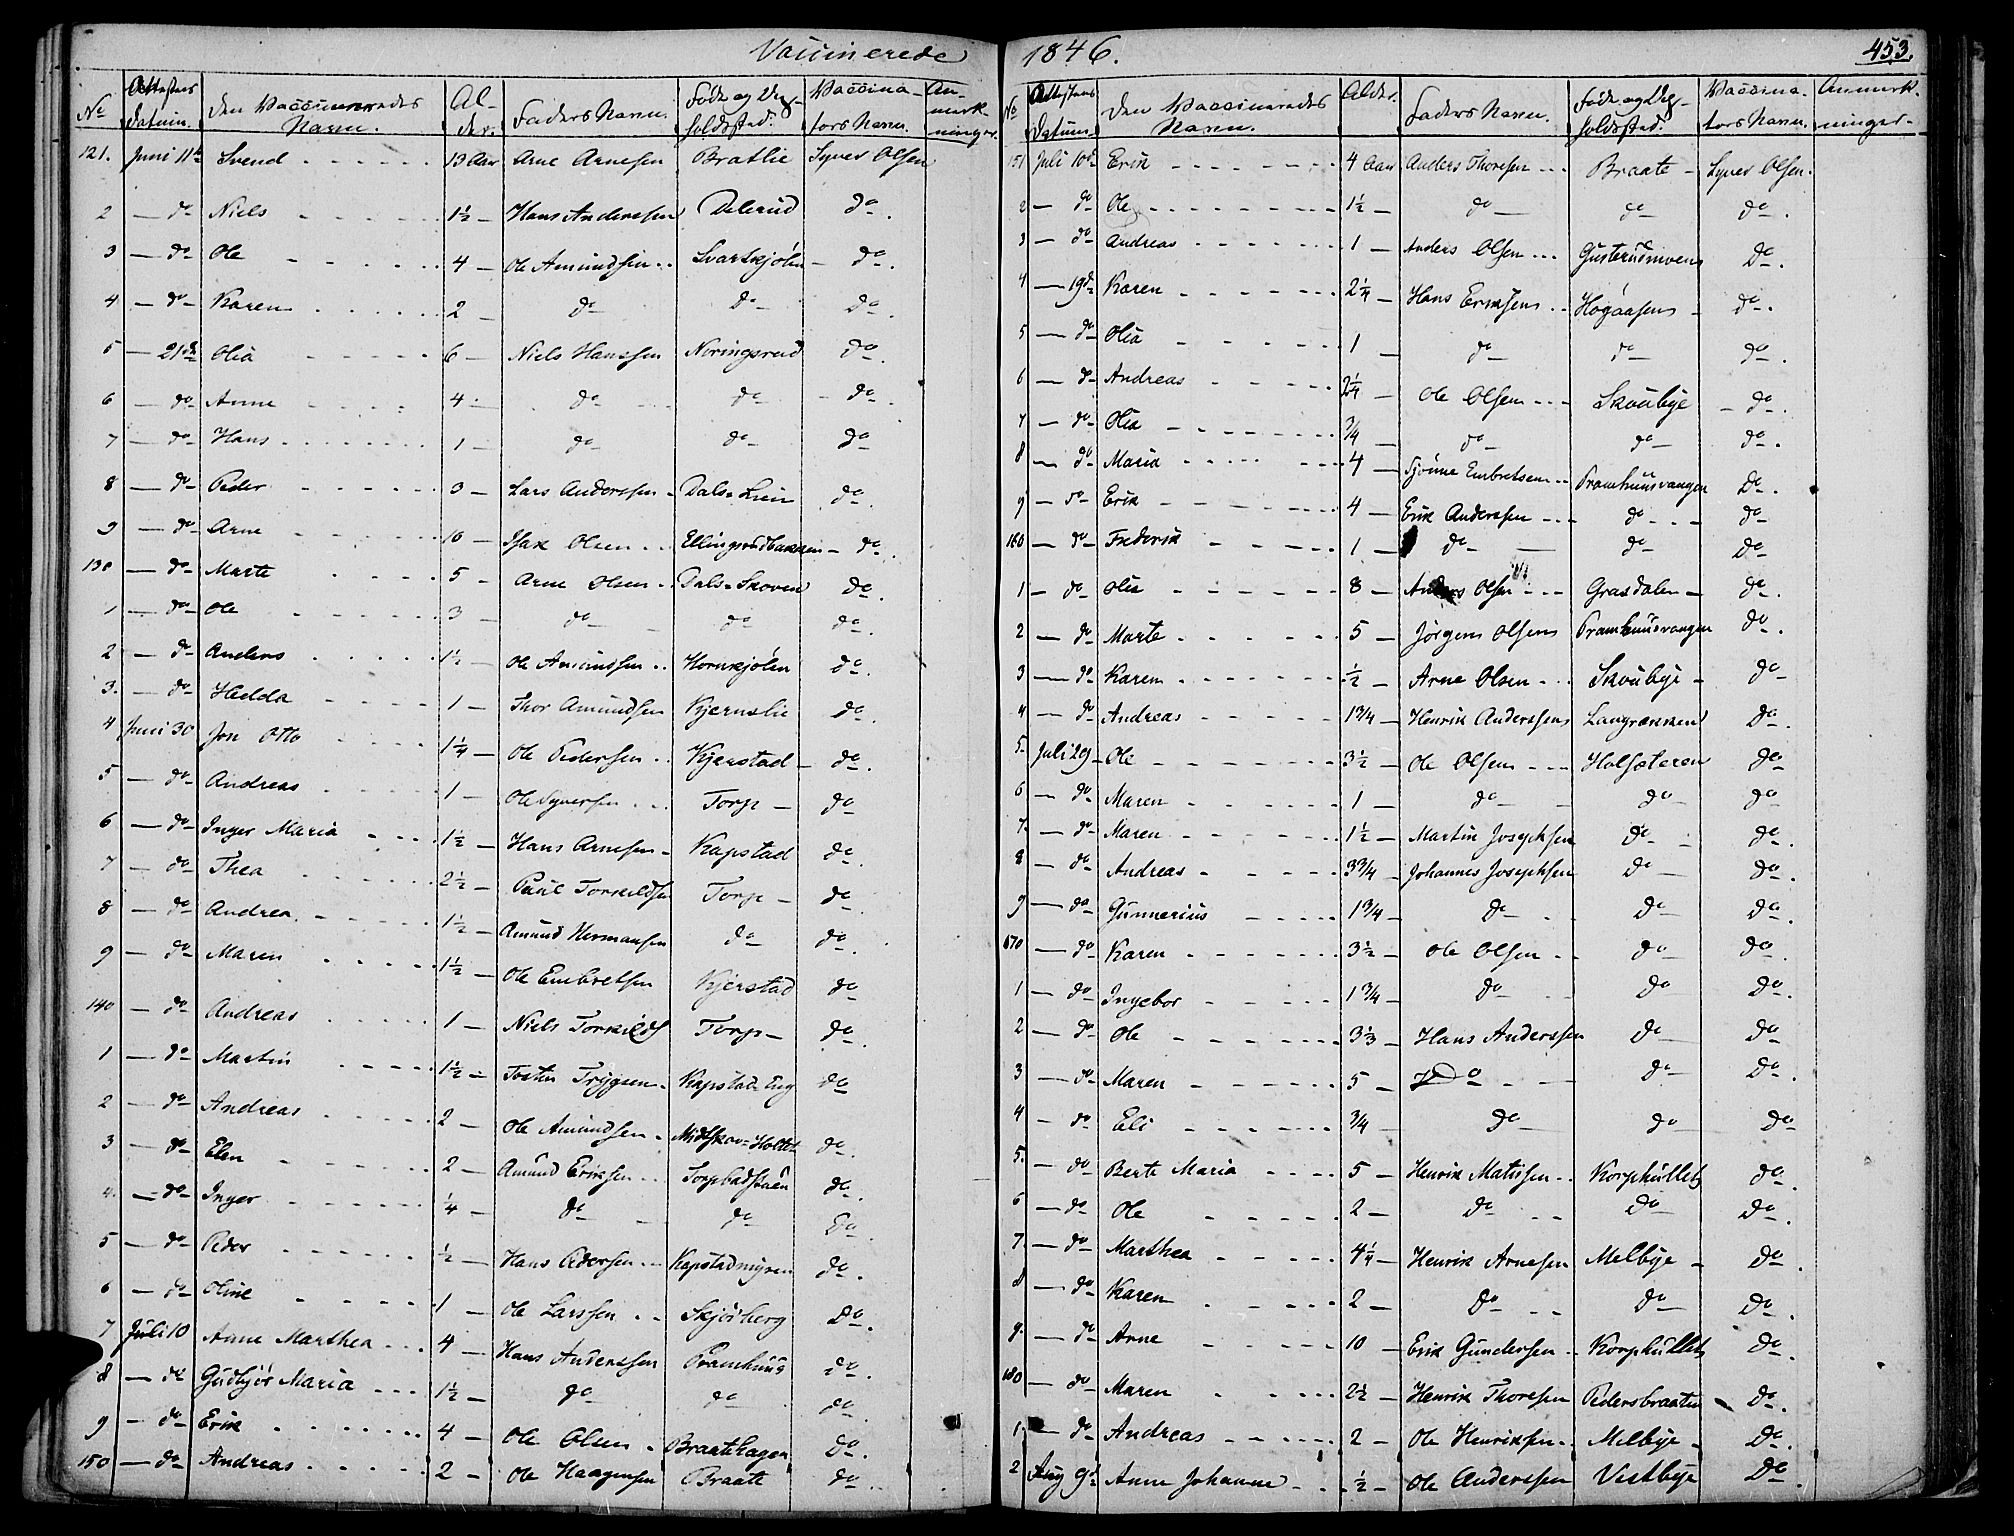 Vaccinerede
No Attestens Datum. Den Vaccineredes Navn. Alder. Faders Navn. Føde og Opholdssted. Vaccinators Navn. Anmerkninger.
121. Juni 11te Svend 13 Aar Arne Arnesen Bratlie Syver Olsen
2 — do Niels 1½ — Hans Anderssen Delerud do
3 — do Ole 4 — Ole Amundsen Svartkjølen do
4 — do Karen 2 — do do do
5 — 21de Olia 6 — Niels Hanssen Noringsrud do
6 — do Anne 4 — do do do
7 — do Hans 1 — do do do
8 — do Peder 3 — Lars Anderssen Dals-Lien do
9 — do Arne 10 — Isak Olsen Ellingsrudbakken do
130 — do Marte 5 — Arne Olsen Dals-Skoven do
1 — do Ole 3 — do do do
2 — do Anders 1½ — Ole Amundsen Hornkjølen do
3. — do Hedda 1 — Thor Amundsen Kjernslie do
4 Juni 30 Jon Otto 1¼ — Ole Pedersen Kjerstad do
5 — do Andreas 1 — Ole Syversen Torp do
6 — do Inger Maria 1½ — Hans Arnesen Kapstad do
7 — do Thea 2½ — Paul Torkildsen Torp do
8 — do Andrea 1½ — Amund Hermansen do do
9 — do Maren 1½ — Ole Embretsen Kjerstad do
140 — do Andreas 1 — Niels Torkilds Torp do
1 — do Martin 1½ — Tosten Trygsen Kapstad Eng do
2 — do Andreas 2 — Ole Amundsen Midtskov-Holtet do
3 — do Elen 2 — Amund Eriksen do
4. — do Inger ¼ — do do do
5 — do Peder ½ — Hans Pedersen Kapstadmyren do
6 — do Oline 1 — Ole Larssen Skjørberg do
7 Juli 10 Anne Marthea 4 — Hans Anderssen Pramhuus do
8 — do Gudbjør Maria 1½ — do do do
9 — do Erik 4 — Ole Olsen Braatehagen do
150 — do Andreas 2 — Ole Haagensen Braate do
1846. 453.
No Attestens Datum. Den Vaccineredes Navn. Alder. Faders Navn. Føde og Opholdssted. Vaccinators Navn. Anmerkninger.
151 Juli 10de Erik 4 Aar Anders Thoresen Braate Syver Olsen.
2 — do Ole 1½ — do do do
3 — do Andreas 1 — Anders Olsen Gusterudmoen do
4 — 19de Karen 2¼ — Hans Eriksen Høgaasen do
5 — do Olia 1 — do do do
6 — do Andreas 2¼ — Ole Olsen Skoubye do
7 — do Olia ¾ — do do do
8 — do Maria 4 — Embretsen Pramhuusvangen do
9 — do Erik 4 — Erik Anderssen do do
160 — do Frederik 1 — do do do
1 — do Olia 8 — Anders Olsen Grasdalen do
2 — do Marte 5 — Jørgen Olsen Pramhuusvangen do
3 — do Karen ½ — Arne Olsen Skoubye do
4 — do Andreas 1¾ — Henrik Anderssen Langrækken do
5 Juli 29 Ole 3½ — Ole Olsen Holsæteren do
6 — do Maren 1 — do do do
7. — do Maren 1½ — Martin Josephsen do do
8 — do Andreas 3¾ — Johannes Josephsen do do
9 — do Gunnerius 1¾ — do do do
170 — do Karen 3½ — Ole Olsen do do
1 — do Ingebor 1¾ — do do do
2 — do Ole 3⅓ — Hans Anderssen do do
3 — do Maren 5 — do do do
4 — do Eli ¾ — do do do
5. — do Berte Maria 5 — Henrik Matisen Korphullet do
6 — do Ole 2 — do do do
7. — do Marthea 4¼ — Henrik Arnesen Melbye do
8 — do Karen 2 — do do do
9. — do Arne 10 — Erik Gundersen Korphullet do
180 — do Maren 2½ — Henrik Thoresen Pedersbraaten do
1 — do Andreas 2 — Ole Henriksen Melbye do
2 Aug 9de Anne Johanne ½ — Ole Anderssen Vestbye do